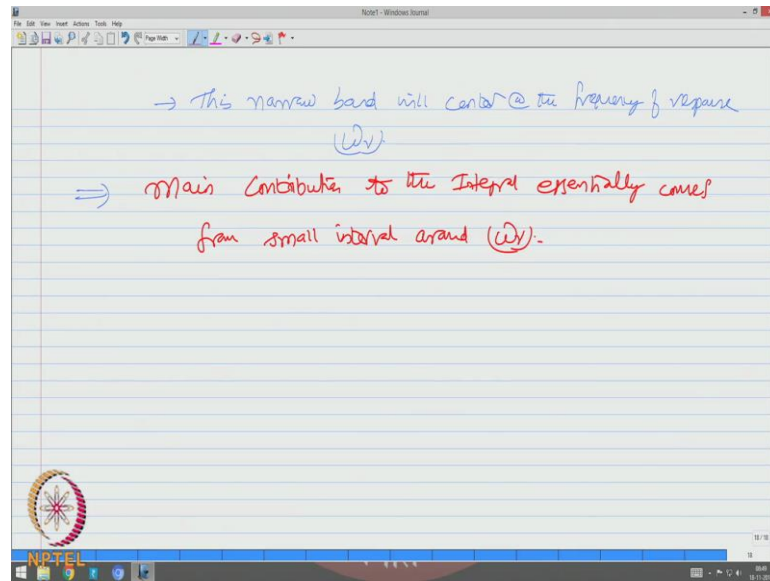 Note1 - Windows Journal
File Edit View Insert Actions Tools Help
Page Width
→ This narrow band will center @ the frequency of response
(ωr).
⇒ Main Contribution to the Integral essentially comes
from small interval around (ωr).
NPTEL
18 / 18
18